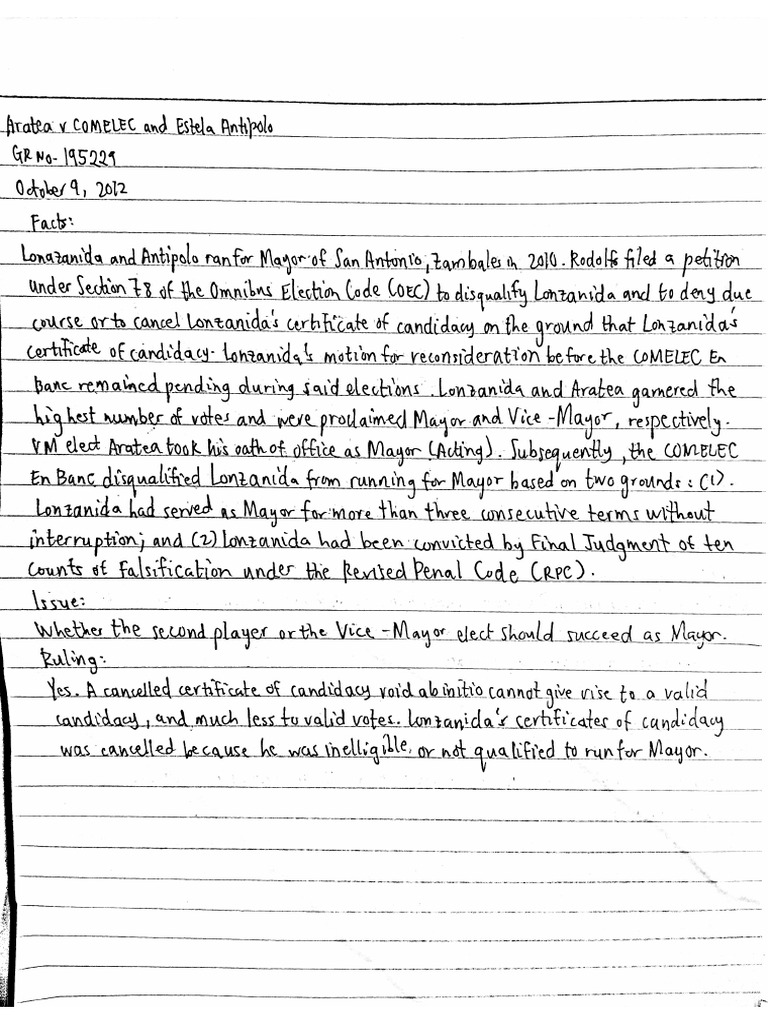 Aratea v COMELEC and Estela Antipolo
GR No- 195229
October 9, 2012
Facts:
Lonazanida and Antipolo ran for Mayor of San Antonio, Zambales in 2010. Rodolfo filed a petition
under Section 78 of the Omnibus Election Code (OEC) to disqualify Lonzanida and to deny due
course or to cancel Lonzanida's certificate of candidacy on the ground that Lonzanida's
certificate of candidacy. Lonzanida's motion for reconsideration before the COMELEC En
Banc remained pending during said elections. Lonzanida and Aratea garnered the
highest number of votes and were proclaimed Mayor and Vice-Mayor, respectively.
VM elect Aratea took his oath of office as Mayor (Acting). Subsequently, the COMELEC
En Banc disqualified Lonzanida from running for Mayor based on two grounds: (1).
Lonzanida had served as Mayor for more than three consecutive terms without
interruption; and (2) Lonzanida had been convicted by Final Judgment of ten
counts of Falsification under the Revised Penal Code (RPC).
Issue:
Whether the second player or the Vice-Mayor elect should succeed as Mayor.
Ruling:
Yes. A cancelled certificate of candidacy void ab initio cannot give rise to a valid
candidacy, and much less to valid votes. Lonzanida's certificates of candidacy
was cancelled because he was inelligible, or not qualified to run for Mayor.